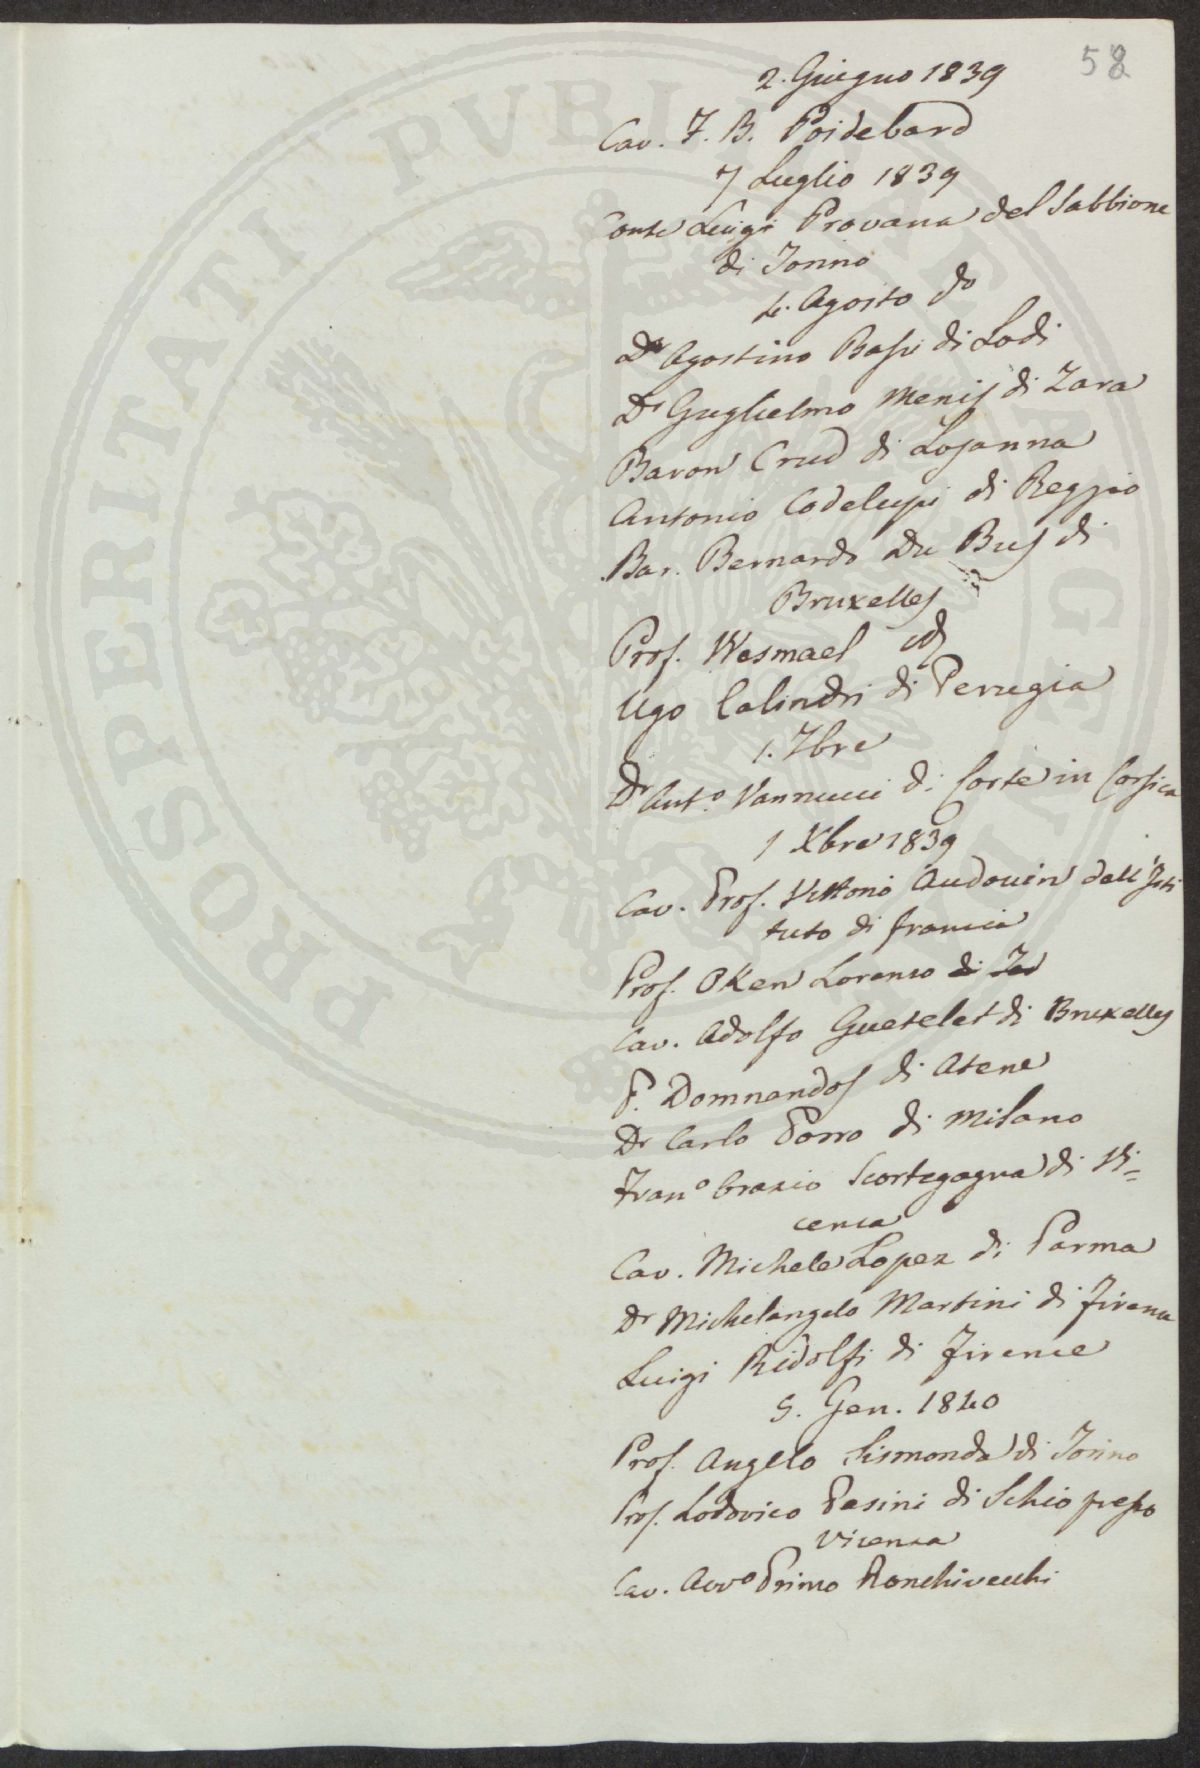 58
2. Giugno 1839
Cav. F. B. Poidebard
7 Luglio 1839
Conte Luigi Provana del Sabbione
di Torino
4. Agosto do
Dr Agostino Bassi di Lodi
Dr Guglielmo Menis di Zara
Baron Crud di Losanna
Antonio Codelupi di Reggio
Bar. Bernardo Du Bus di
Bruxelles
Prof. Wesmael id
Ugo Calindri di Perugia
1. 7bre
Dr Anto. Vannucci di Corte in Corsica
1 Xbre 1839
Cav. Prof. Vittorio Audouin dell'Isti
tuto di francia
Prof. Oken Lorenzo di
Cav. Adolfo Quetelet di Bruxelles
P. Domnandos di Atene
Dr Carlo Porro di Milano
Frano Orazio Scortegagna di Vi=
cenza
Cav. Michele Lopez di Parma
Dr Michelangelo Martini di firenze
Luigi Ridolfi di Firenze
5. Gen. 1840
Prof. Angelo Sismonda di Torino
Prof. Lodovico Pasini di Schio presso
Vicenza
Cav. Avvo Primo Ronchivecchi
PROSPERITATI PVBLICAE AVGENDAE